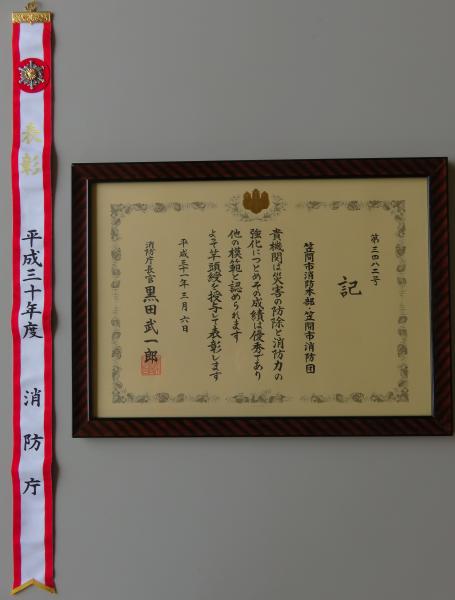 表彰
平成三十年度
消防庁
第三四八二号
記
笠間市消防本部・笠間市消防団
貴機関は災害の防除と消防力の
強化につとめその成績は優秀であり
他の模範と認められます
よつて竿頭綬を授与して表彰します
平成三十一年三月六日
消防庁長官 黒田武一郎